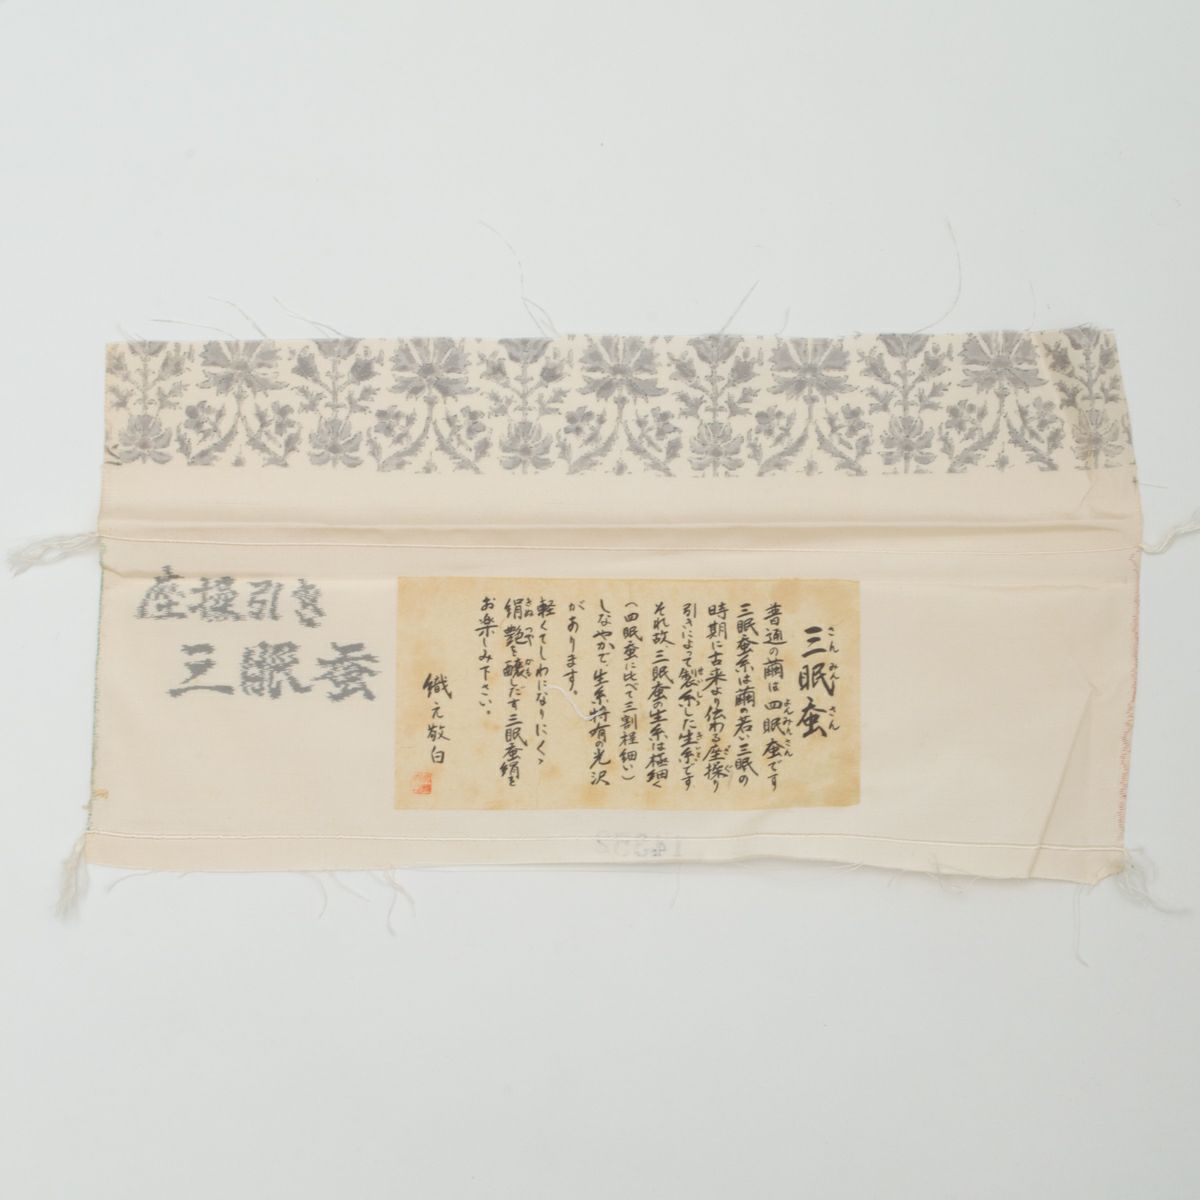 座操引き
三眠蚕
三眠蚕
さんみんさん
普通の繭は四眠蚕です
よんみんさん
三眠蚕糸は繭の若い三眠の
時期に古来より伝わる座操り
ざぐ
引きによって製糸した生糸です
せいし
きいと
それ故三眠蚕の生糸は極細く
(四眠蚕に比べて三割程細い)
しなやかで、生糸特有の光沢
があります。
軽くてしわになりにくく
絹艶を醸しだす三眠蚕絹を
きぬつや
かも
お楽しみ下さい。
織元敬白
14352